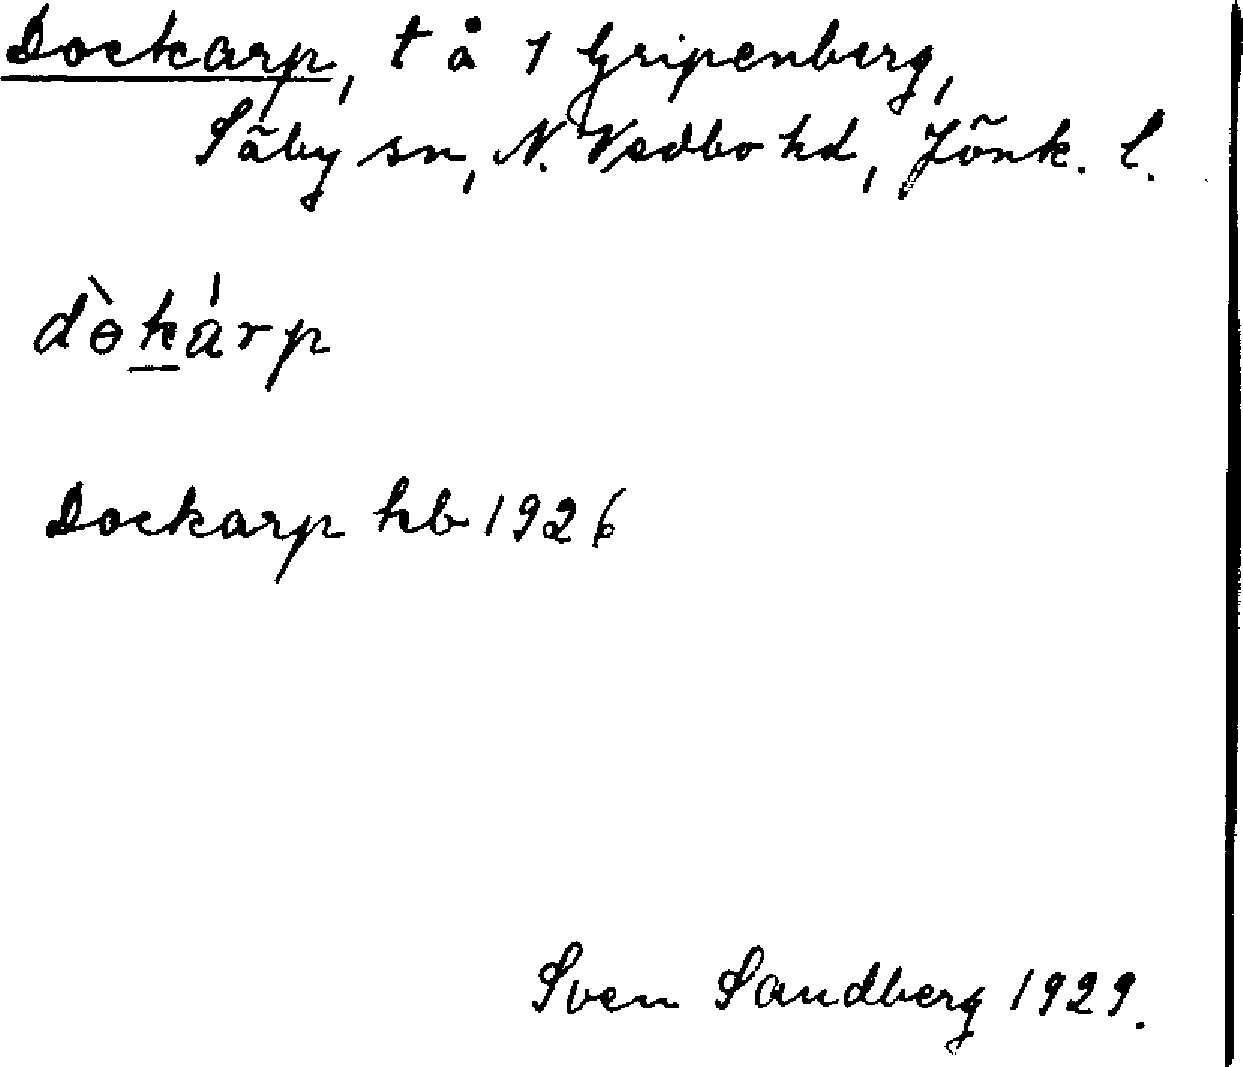 Dockarp, t å 1 Gripenberg,
Säby sn, N. Vedbo hd, Jönk. l.
dɵ̀ká̱rp
Dockarp hb 1926
Sven Sandberg 1929.